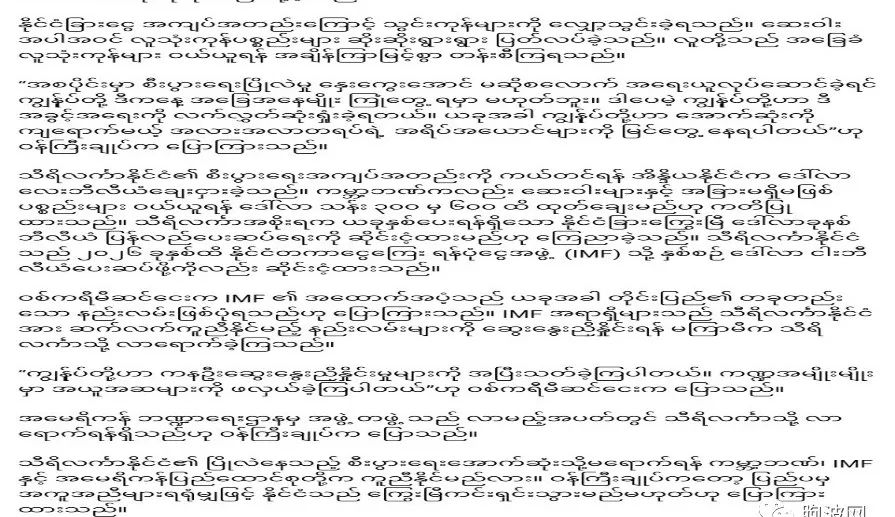 နိုင်ငံခြားငွေ အကျပ်အတည်းကြောင့် သွင်းကုန်များကို လျှော့သွင်းခဲ့ရသည်။ ဆေးဝါး
အပါအဝင် လူသုံးကုန်ပစ္စည်းများ ဆိုးဆိုးရွားရွား ပြတ်လပ်ခဲ့သည်။ လူတို့သည် အခြေခံ
လူသုံးကုန်များ ဝယ်ယူရန် အချိန်ကြာမြင့်စွာ တန်းစီကြရသည်။
“အစပိုင်းမှာ စီးပွားရေးပြိုလဲမှု နှေးကွေးအောင် မဆိုစလောက် အရေးယူလုပ်ဆောင်ခဲ့ရင်
ကျွန်ုပ်တို့ ဒီကနေ့ အခြေအနေမျိုး ကြုံတွေ့ရမှာ မဟုတ်ဘူး။ ဒါပေမဲ့ ကျွန်ုပ်တို့ဟာ ဒီ
အခွင့်အရေးကို လက်လွှတ်ဆုံးရှုံးခဲ့ရတယ်။ ယခုအခါ ကျွန်ုပ်တို့ဟာ အောက်ဆုံးကို
ကျရောက်မယ့် အလားအလာတရပ်ရဲ့ အရိပ်အယောင်များကို မြင်တွေ့နေရပါတယ်”ဟု
ဝန်ကြီးချုပ်က ပြောကြားသည်။
သီရိလင်္ကာနိုင်ငံ၏ စီးပွားရေးအကျပ်အတည်းကို ကယ်တင်ရန် အိန္ဒိယနိုင်ငံက ဒေါ်လာ
လေးဘီလီယံချေးငှားခဲ့သည်။ ကမ္ဘာ့ဘဏ်ကလည်း ဆေးဝါးများနှင့် အခြားမရှိမဖြစ်
ပစ္စည်းများ ဝယ်ယူရန် ဒေါ်လာ သန်း ၃၀၀ မှ ၆၀၀ ထိ ထုတ်ချေးမည်ဟု ကတိပြု
ထားသည်။ သီရိလင်္ကာအစိုးရက ယခုနှစ်ပေးရန်ရှိသော နိုင်ငံခြားကြွေးမြီ ဒေါ်လာခုနစ်
ဘီလီယံ ပြန်လည်ပေးဆပ်ရေးကို ဆိုင်းငံ့ထားမည်ဟု ကြေညာခဲ့သည်။ သီရိလင်္ကာနိုင်ငံ
သည် ၂၀၂၆ ခုနှစ်ထိ နိုင်ငံတကာငွေကြေး ရန်ပုံငွေအဖွဲ့ (IMF) သို့ နှစ်စဉ် ဒေါ်လာ ငါးဘီ
လီယံပေးဆပ်ဖို့ကိုလည်း ဆိုင်းငံ့ထားသည်။
ဝစ်ကရီမီဆင်ငေးက IMF ၏ အထောက်အပံ့သည် ယခုအခါ တိုင်းပြည်၏ တခုတည်း
သော နည်းလမ်းဖြစ်ပုံရသည်ဟု ပြောကြားသည်။ IMF အရာရှိများသည် သီရိလင်္ကာနိုင်ငံ
အား ဆက်လက်ကူညီနိုင်မည့် နည်းလမ်းများကို ဆွေးနွေးညှိနှိုင်းရန် မကြာမီက သီရိ
လင်္ကာသို့ လာရောက်ခဲ့ကြသည်။
“ကျွန်ုပ်တို့ဟာ ကနဦးဆွေးနွေးညှိနှိုင်းမှုများကို အပြီးသတ်ခဲ့ကြပါတယ်။ ကဏ္ဍအမျိုးမျိုး
မှာ အယူအဆများကို ဖလှယ်ခဲ့ကြပါတယ်”ဟု ဝစ်ကရီမီဆင်ငေးက ပြောသည်။
အမေရိကန် ဘဏ္ဍာရေးဌာနမှ အဖွဲ့တဖွဲ့သည် လာမည့်အပတ်တွင် သီရိလင်္ကာသို့ လာ
ရောက်ရန်ရှိသည်ဟု ဝန်ကြီးချုပ်က ပြောသည်။
သီရိလင်္ကာနိုင်ငံ၏ ပြိုလဲနေသည့် စီးပွားရေးအောက်ဆုံးသို့မရောက်ရန် ကမ္ဘာ့ဘဏ်၊ IMF
နှင့် အမေရိကန်ပြည်ထောင်စုတို့က ကူညီနိုင်မည်လား။ ဝန်ကြီးချုပ်ကတော့ ပြည်ပမှ
အကူအညီများရရုံမျှဖြင့် နိုင်ငံသည် ကြွေးမြီကင်းရှင်းသွားမည်မဟုတ်ဟု ပြောကြား
ထားသည်။